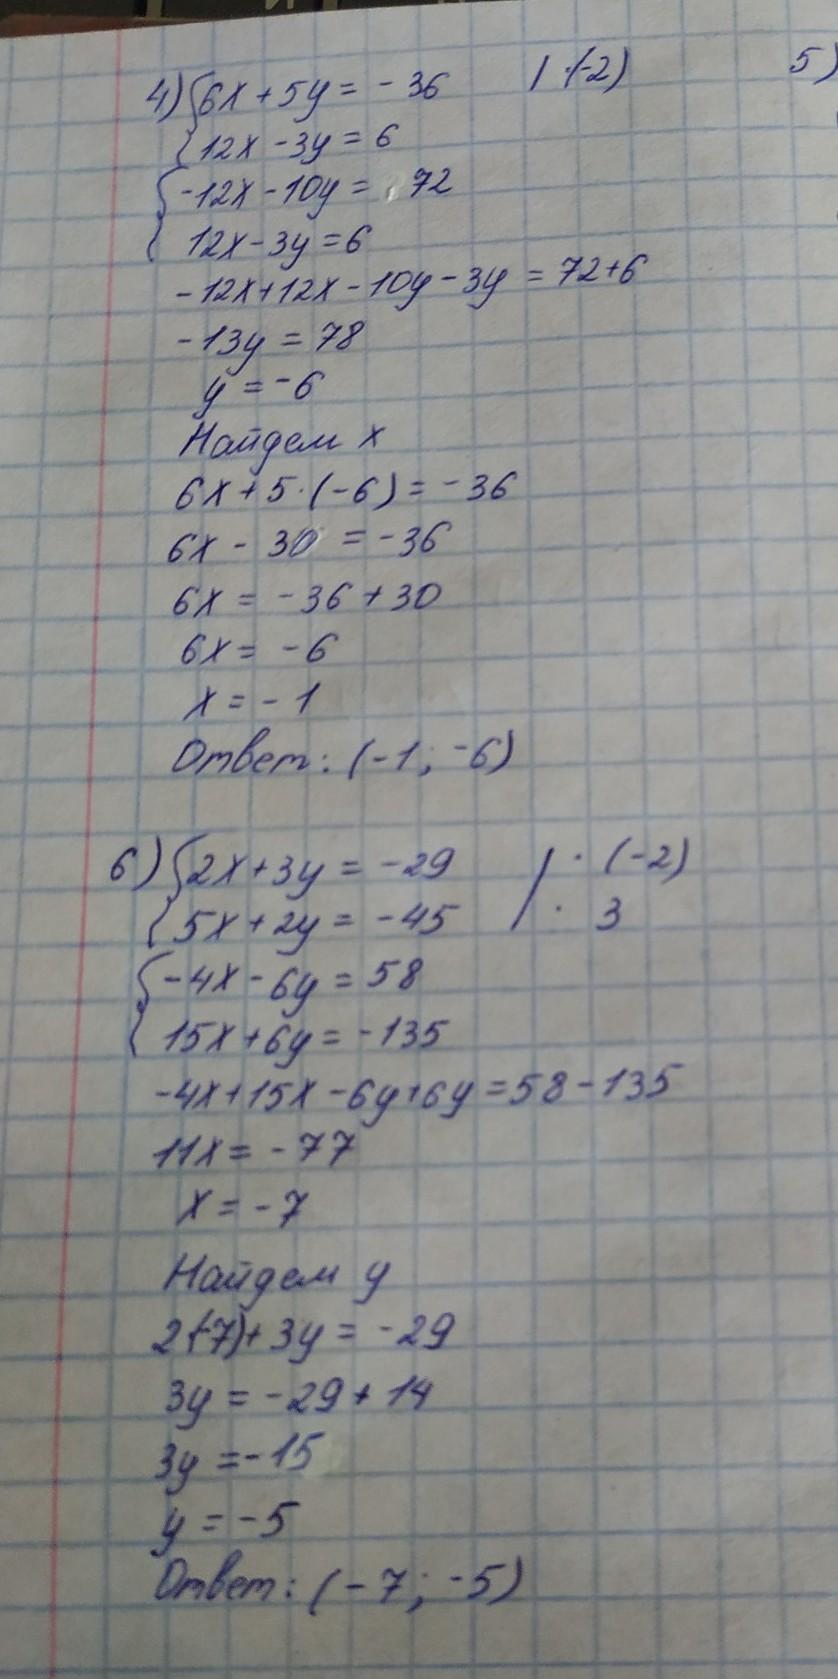 4) {6x + 5y = -36 | ·(-2)
{12x - 3y = 6
{-12x - 10y = 72
{12x - 3y = 6
-12x + 12x - 10y - 3y = 72 + 6
-13y = 78
y = -6
Найдем x
6x + 5·(-6) = -36
6x - 30 = -36
6x = -36 + 30
6x = -6
x = -1
Ответ: (-1; -6)
5)
6) {2x + 3y = -29 | · (-2)
{5x + 2y = -45 | · 3
{-4x - 6y = 58
{15x + 6y = -135
-4x + 15x - 6y + 6y = 58 - 135
11x = -77
x = -7
Найдем y
2(-7) + 3y = -29
3y = -29 + 14
3y = -15
y = -5
Ответ: (-7; -5)